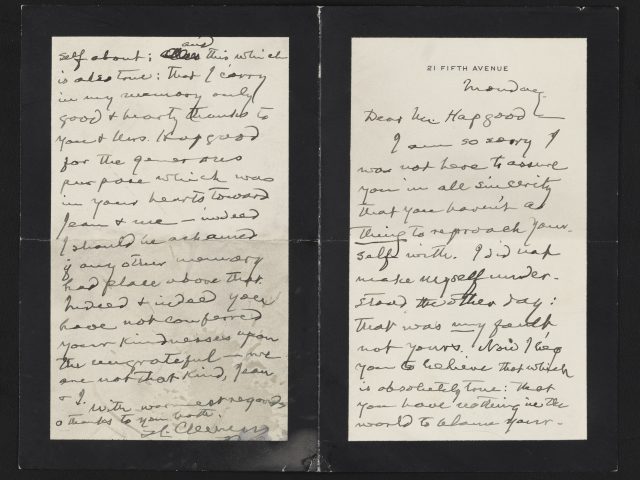 21 FIFTH AVENUE
Monday.
Dear Mr. Hapgood —
I am so sorry I
was not here to assure
you in all sincerity
that you haven't a
thing to reproach your-
self with. I did not
make myself under-
stood the other day:
that was my fault
not yours. Now I beg
you to believe that which
is absolutely true: that
you have nothing in the
world to blame your-
self about; and this which
is also true: that I carry
in my memory only
good & hearty thanks to
you & Mrs. Hapgood
for the generous
purpose which was
in your hearts toward
Jean & me — indeed
I should be ashamed
if any other memory
had place above that.
Indeed & indeed you
have not conferred
your kindnesses upon
the ungrateful — we
are not that kind, Jean
& I.
With warmest regards
& thanks to you both.
SL Clemens